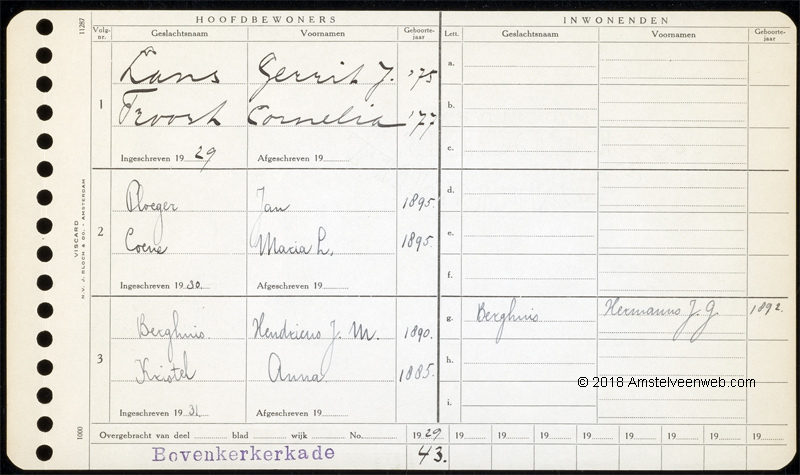 HOOFDBEWONERS INWONENDEN
11287 Volg-nr. Geslachtsnaam Voornamen Geboorte-jaar Lett. Geslachtsnaam Voornamen Geboorte-jaar
Lans Gerrit J. '75 a.
1 Troost Cornelia '77 b.
c.
Ingeschreven 19 29 Afgeschreven 19
Ploeger Jan 1895. d.
2 Coene Maria L. 1895. e.
f.
Ingeschreven 19 30. Afgeschreven 19
VISCARD
N.V. J. BLOCH & Co. - AMSTERDAM
g. Berghuis Hermanus J. G. 1892.
Berghuis. Hendricus J. M. 1890.
3 h.
Kristel Anna 1885.
© 2018 Amstelveenweb.com
i.
Ingeschreven 19 31. Afgeschreven 19
1000 Overgebracht van deel blad wijk No. 19 29. 19 19 19 19 19 19 19 19
Bovenkerkerkade 43.